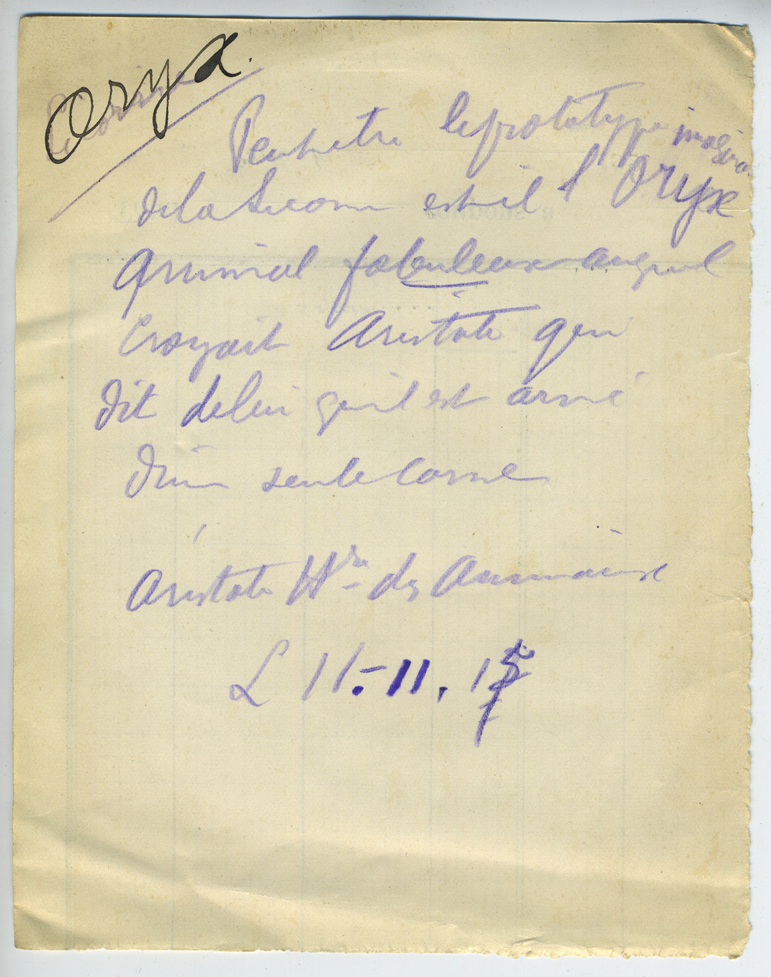 Oryx.
Peut etre le prototype
de la Licorne est il l'Oryx
Animal fabuleux auquel
Croyait Aristote qui
dit de lui qu'il est armé
d'une seule Corne
Aristote Hre des Animaux
L II.-II. 15